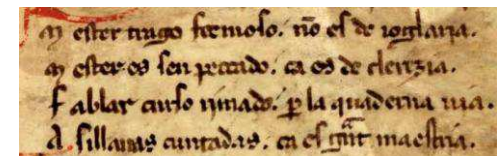 M ester trago fermoso. nō es de ioglaria.
M ester es sen peccado. ca es de clerezia.
F ablar curso rimado. ꝑ la quaderna uia.
A sillauas cuntadas. ca es gñt maestria.